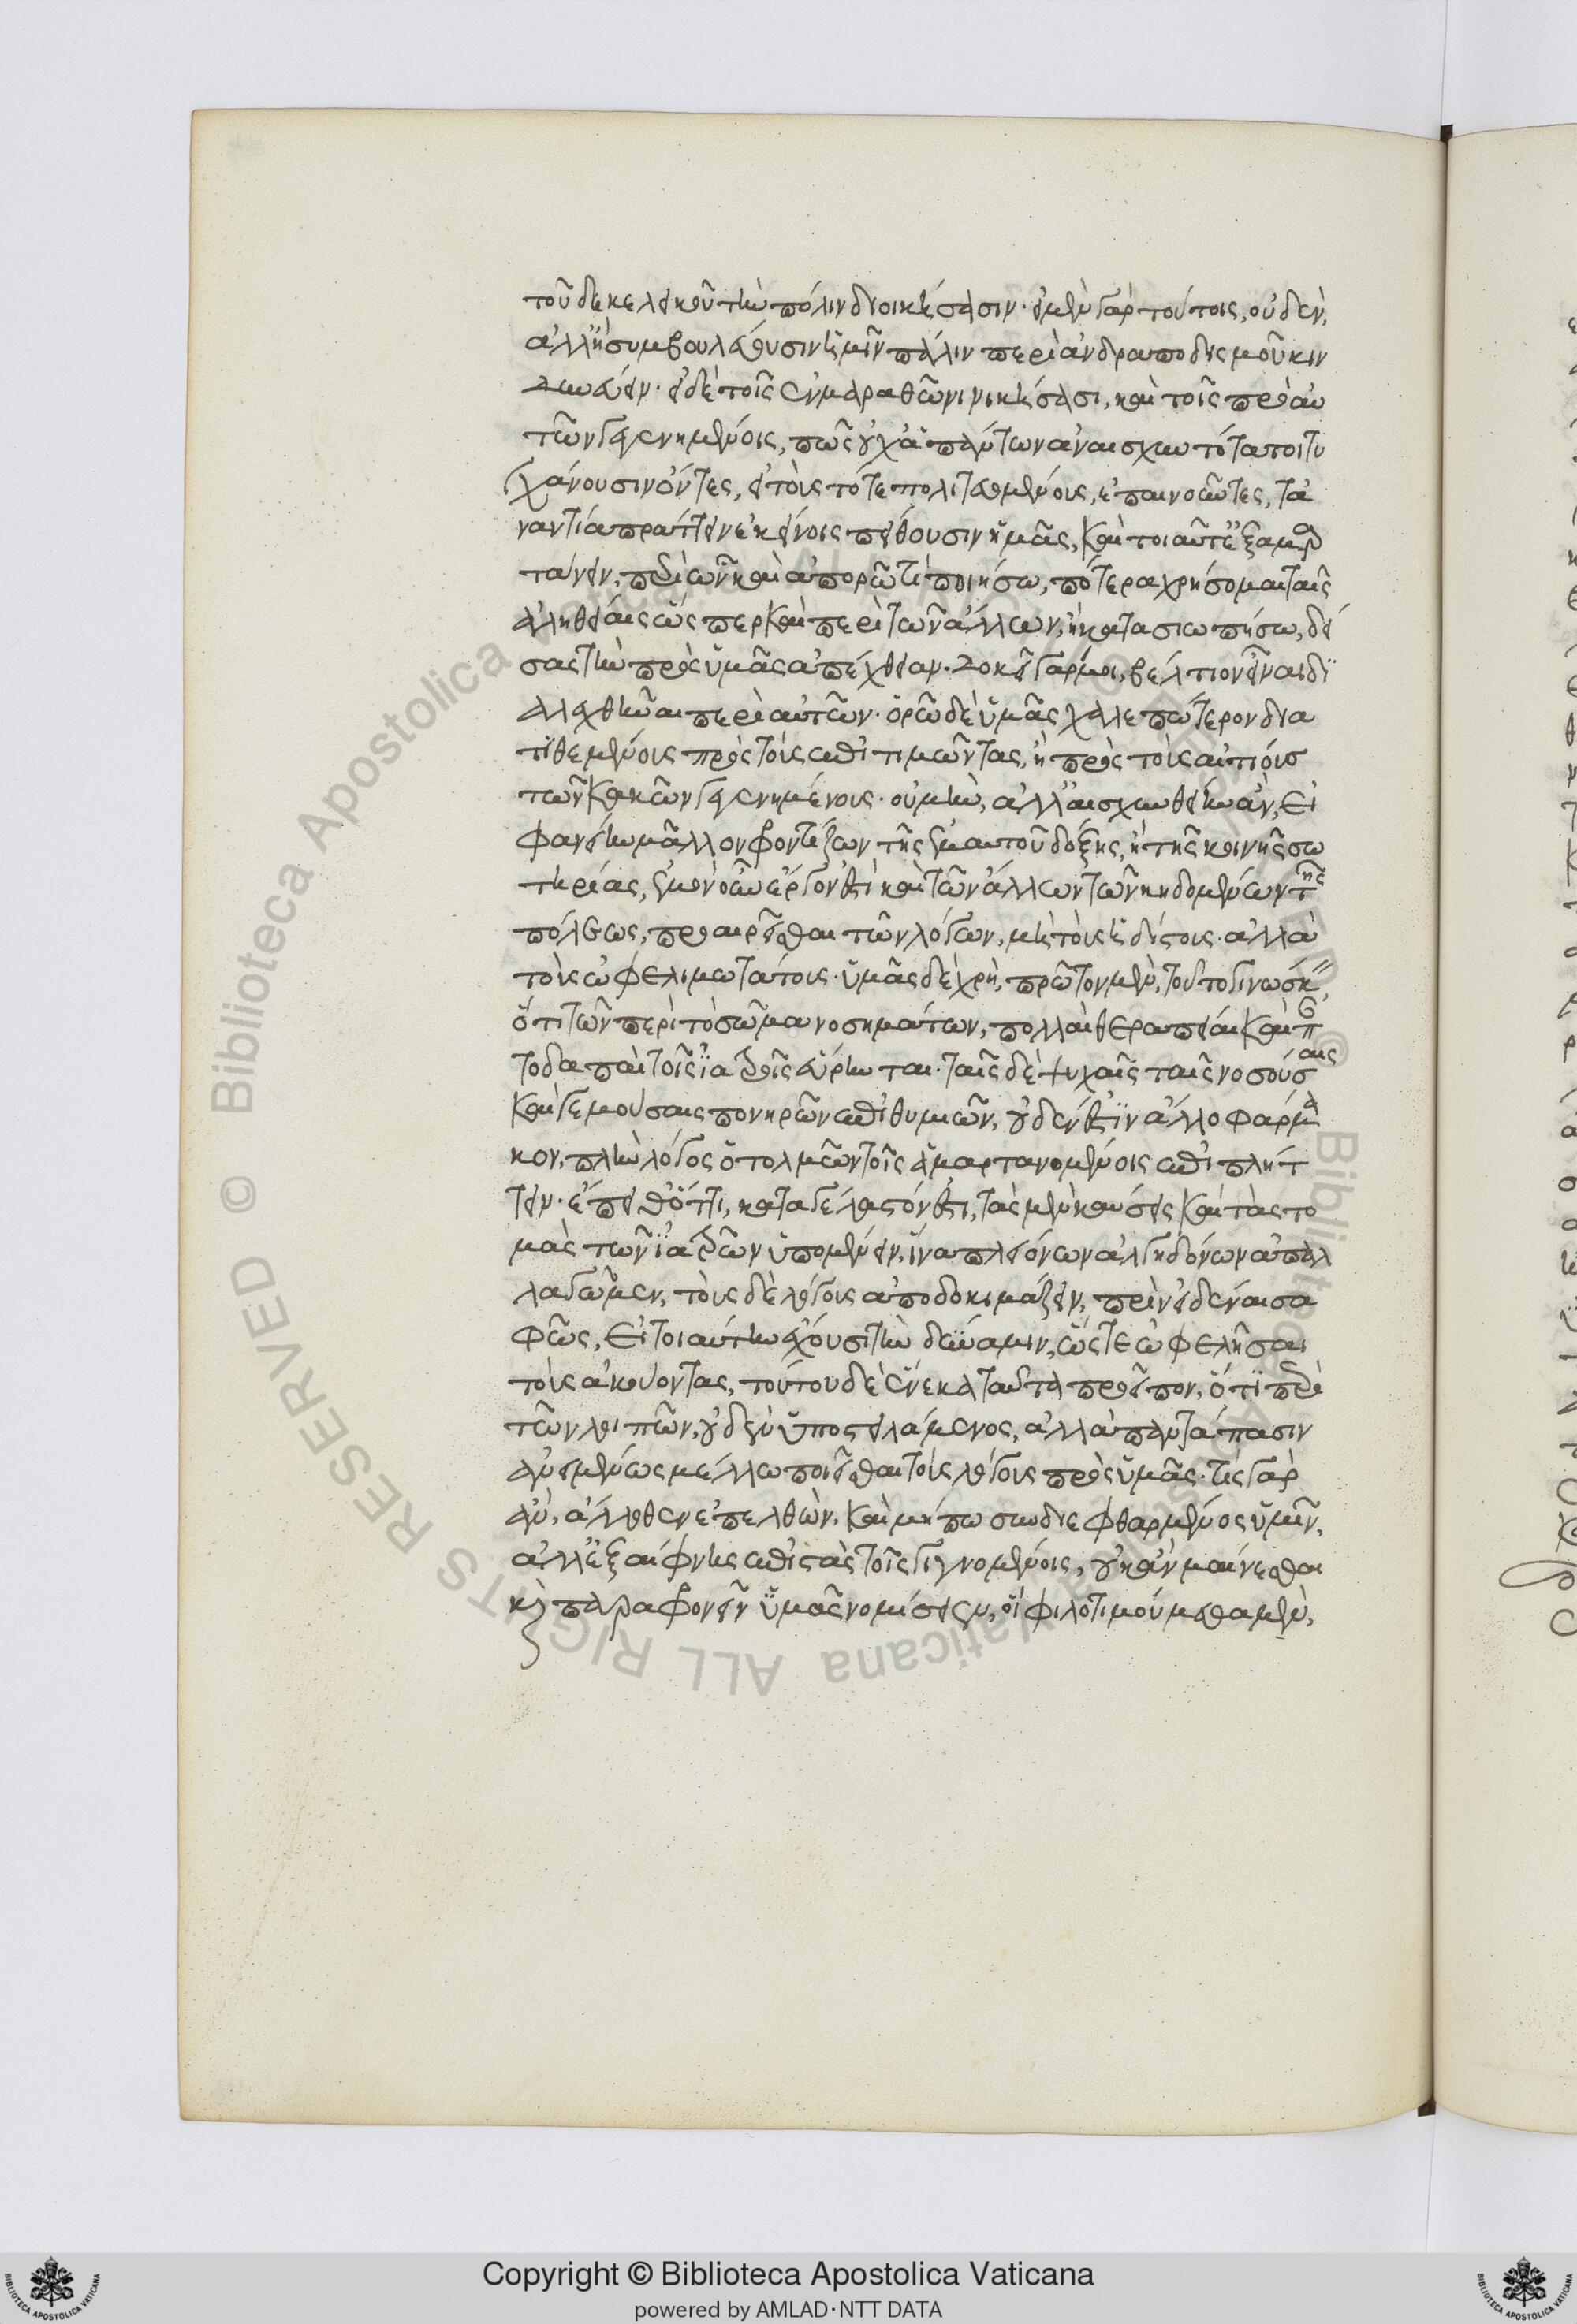 τοῦ δεκελεικοῦ τὴν πόλιν διοικήσασιν· εἰ μὲν γὰρ τούτοις, οὐδὲν,
ἀλλ' ἢ συμβουλεύουσιν ἡμῖν πάλιν περὶ ἀνδραποδισμοῦ κιν
δυνεύειν· εἰ δὲ τοῖς ἐν μαραθῶνι νικήσασι, καὶ τοῖς πρὸ αὐ
τῶν γεγενημένοις, πῶς οὐχ ἁπάντων ἀναισχυντότατοι τυ
γχάνουσιν ὄντες, εἰ τοὺς τότε πολιτευομένους, ἐπαινοῦντες, τἀ
ναντία πράττειν ἐκείνοις πείθουσιν ἡμᾶς, καὶ τοιαῦτ' ἐξαμαρ
τάνειν, περὶ ὧν καὶ ἀπορῶ τί ποιήσω, πότερα χρήσομαι ταῖς
ἀληθείαις ὥσπερ καὶ περὶ τῶν ἄλλων, ἢ κατασιωπήσω, δεί
σας τὴν πρὸς ὑμᾶς ἀπέχθειαν. δοκεῖ γάρ μοι, βέλτιον εἶναι δι
αλεχθῆναι περὶ αὐτῶν. ὁρῶ δὲ ὑμᾶς χαλεπώτερον δια
τιθεμένους πρὸς τοὺς ἐπιτιμῶντας, ἢ πρὸς τοὺς αἰτίους
τῶν κακῶν γεγενημένους. οὐ μὴν, ἀλλ' αἰσχυνθείην ἂν, εἰ
φανείην μᾶλλον φροντίζων τῆς ἐμαυτοῦ δόξης, ἢ τῆς κοινῆς σω
τηρίας, ἐμὸν οὖν ἔργον ἐστὶ καὶ τῶν ἄλλων τῶν κηδομένων τῆς
πόλεως, προαιρεῖσθαι τῶν λόγων, μὴ τοὺς ἡδίστους. ἀλλὰ
τοὺς ὠφελιμωτάτους. ὑμᾶς δὲ χρὴ, πρῶτον μὲν, τοῦτο γινώσκειν
ὅτι τῶν περὶ τὸ σῶμα νοσημάτων, πολλαὶ θεραπεῖαι καὶ παν
τοδαπαὶ τοῖς ἰατροῖς εὕρηνται. ταῖς δὲ ψυχαῖς ταῖς νοσούσαις
καὶ γεμούσαις πονηρῶν ἐπιθυμιῶν, οὐδέν ἐστιν ἄλλο φάρμα
κον, πλὴν λόγος ὁ τολμῶν τοῖς ἁμαρτανομένοις ἐπιπλήτ
τειν. ἔπειθ' ὅτι, καταγέλαστόν ἐστι, τὰς μὲν καύσεις καὶ τὰς το
μὰς τῶν ἰατρῶν ὑπομένειν, ἵνα πλειόνων ἀλγηδόνων ἀπαλ
λαγῶμεν, τοὺς δὲ λόγους ἀποδοκιμάζειν, πρὶν εἰδέναι σα
φῶς, εἰ τοιαύτην ἔχουσι τὴν δύναμιν, ὥστε ὠφελῆσαι
τοὺς ἀκούοντας, τούτου δὲ ἕνεκα ταῦτα προεῖπον, ὅτι περὶ
τῶν λοιπῶν, οὐδὲν ὑποστειλάμενος, ἀλλὰ παντάπασιν
ἀνειμένως μέλλω ποιεῖσθαι τοὺς λόγους πρὸς ὑμᾶς. τίς γὰρ
ἂν, ἄλλοθεν ἐπελθὼν, καὶ μήπω συνδιεφθαρμένος ὑμῖν,
ἀλλ' ἐξαίφνης ἐπιστὰς τοῖς γιγνομένοις, οὐκ ἂν μαίνεσθαι
καὶ παραφρονεῖν ὑμᾶς νομίσειεν, οἳ φιλοτιμούμεθα μὲν,